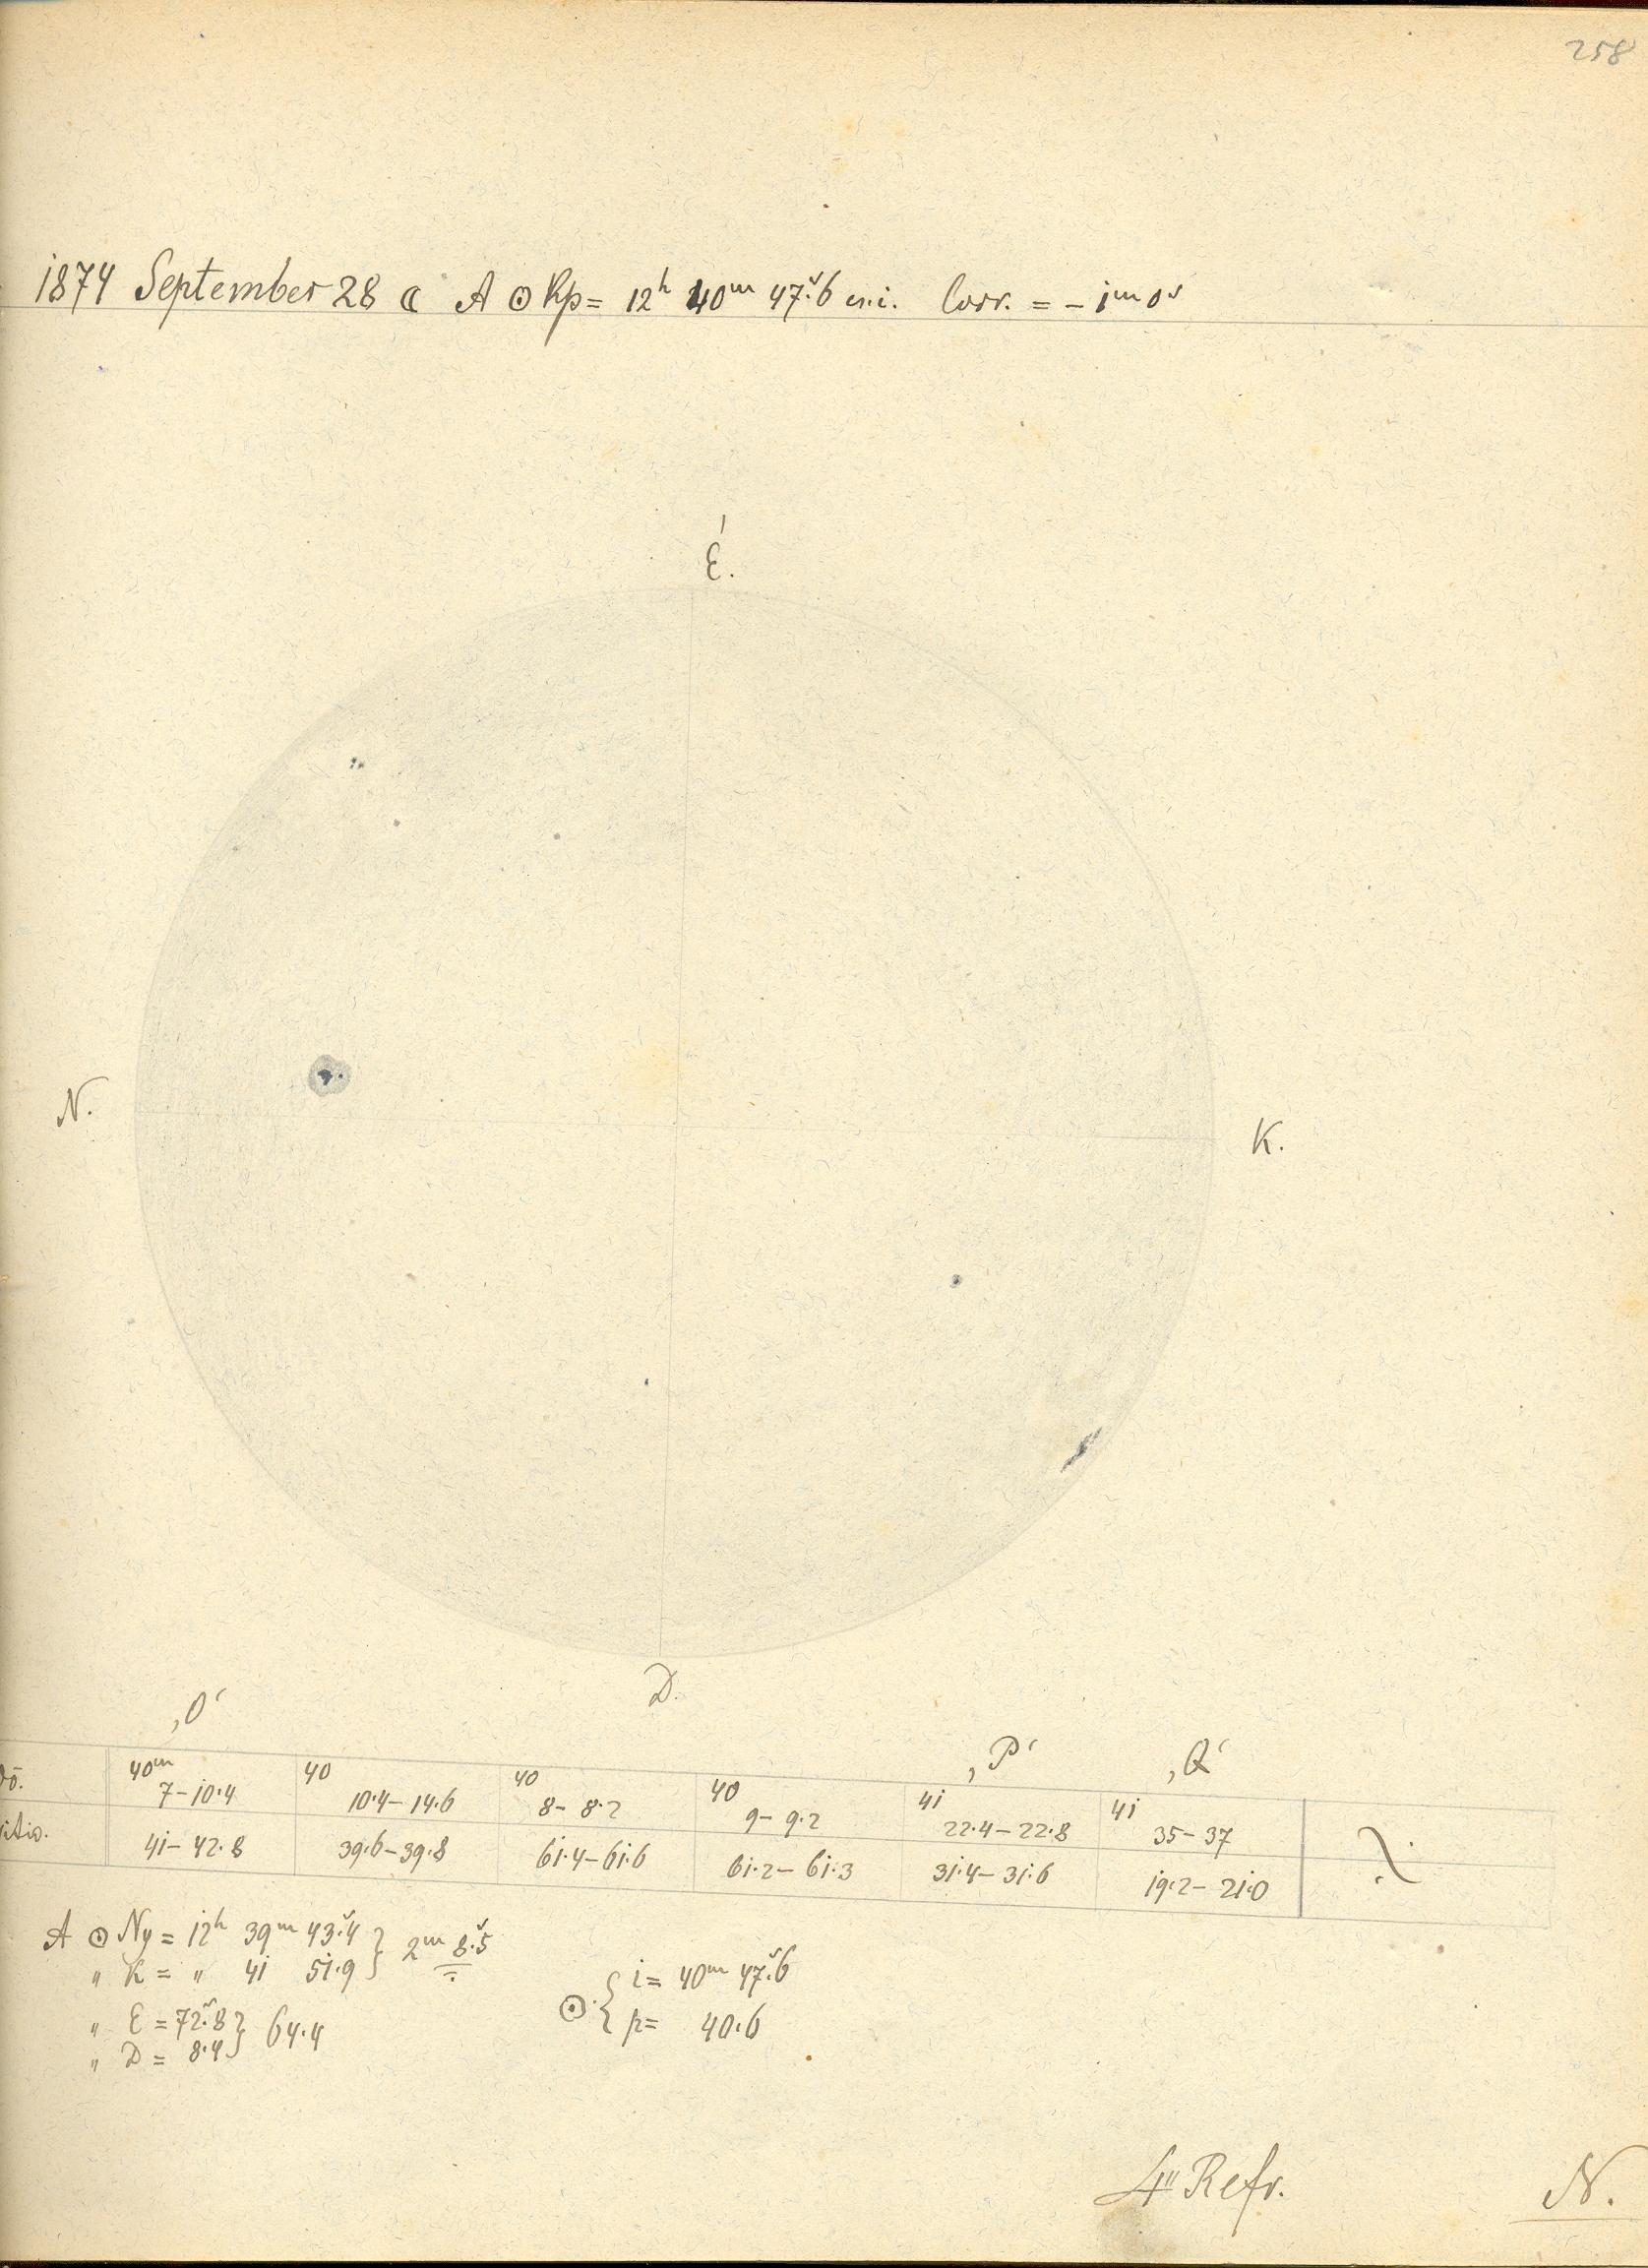 258
1874 September 28 ☾ A ⊙ Kp = 12ʰ 40ᵐ 47ˢ.6 cs.i. Corr. = – 1ᵐ 0ˢ
É.
N.
K.
D.
‚O‘ ‚P‘ ‚Q‘
dő. 40ᵐ 7–10.4 40 10.4–14.6 40 8–8.2 40 9–9.2 41 22.4–22.8 41 35–37
sitio. 41–42.8 39.6–39.8 61.4–61.6 61.2–61.3 31.4–31.6 19.2–21.0
A ⊙ Ny = 12ʰ 39ᵐ 43ˢ.4 } 2ᵐ 8ˢ.5
" K = " 41 51.9
" E = 72ˢ.8 } 64.4
" D = 8.4
⊙ { i = 40ᵐ 47ˢ.6
p = 40.6
4" Refr.
N.